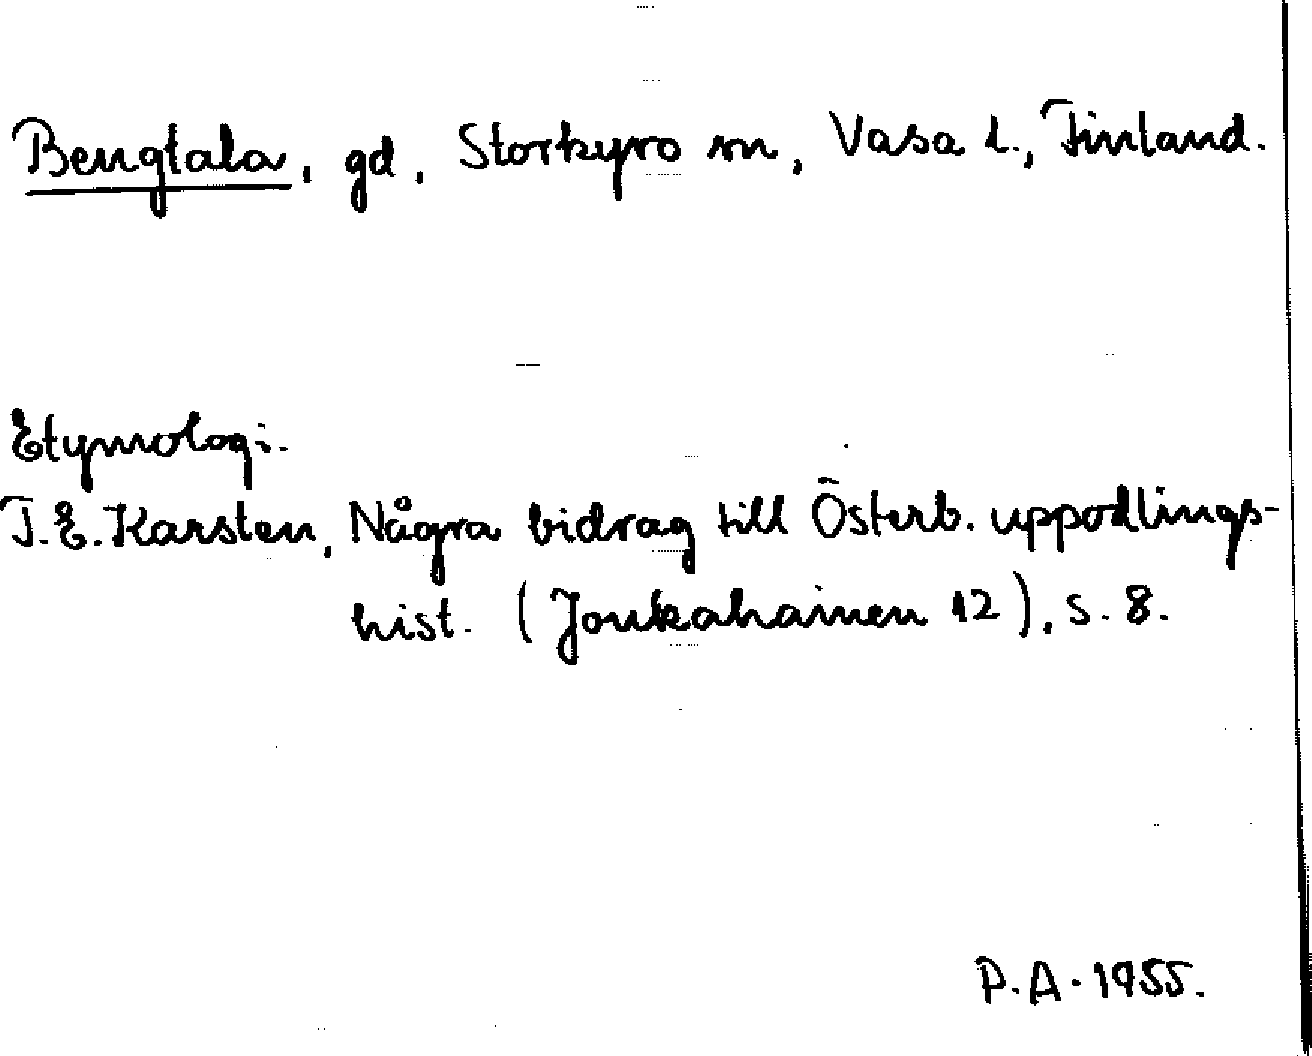 Bengtala, gd, Storkyro sn, Vasa l., Finland.
Etymologi.
T.E. Karsten, Några bidrag till Österb. uppodlings-
hist. (Joukahainen 12), s. 8.
P.A. 1955.